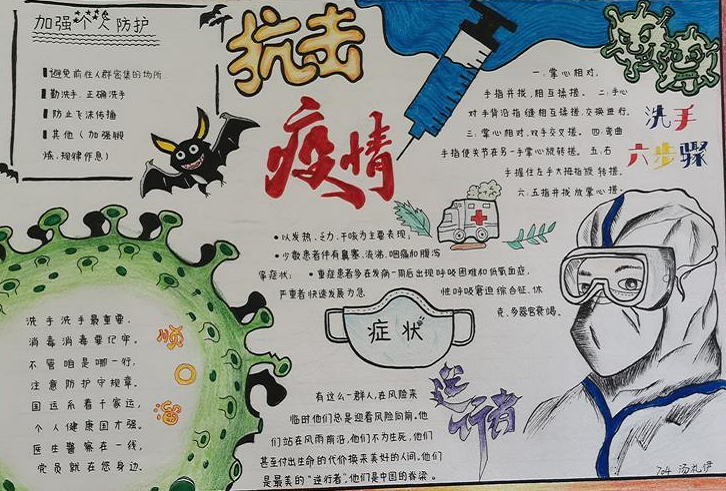 加强个人防护
避免前往人群密集的场所
勤洗手.正确洗手
防止飞沫传播
其他(加强锻
炼,规律作息)
抗击
疫情
一:掌心相对,
手指并拢,相互揉搓。二:手心
对手背沿指缝相互揉搓,交换进行。
三:掌心相对,双手交叉搓。四:弯曲
手指使关节在另一手掌心旋转搓。五:右
手握住左手大拇指旋转搓。
六:五指并拢放掌心搓。
洗手
六步骤
以发热、乏力、干咳为主要表现;
少数患者伴有鼻塞、流涕、咽痛和腹泻
等症状;
重症患者多在发病一周后出现呼吸困难和低氧血症,
严重者快速发展为急
性呼吸窘迫综合征、休
克、多器官衰竭。
症状
洗手洗手最重要,
消毒消毒要记牢。
不管咱是哪一行,
注意防护守规章。
国运系着千家运,
个人健康国才强。
医生警察在一线,
党员就在您身边。
顺
口
溜
有这么一群人,在风险来
临时他们总是迎着风险向前。他
们站在风雨前沿,他们不为生死,他们
甚至付出生命的代价换来美好的人间。他们
是最美的“逆行者”,他们是中国的脊梁。
逆行者
704